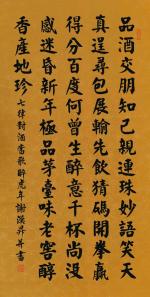 品酒交朋知己親連珠妙語笑天
真逞尋包展輸先飲猜碼開拳贏
得分百度何曾生醉意千杯尚没
感迷昏新年極品茅臺味老窖醇
香產地珍
七律對酒當歌醉虎年謝漢并書